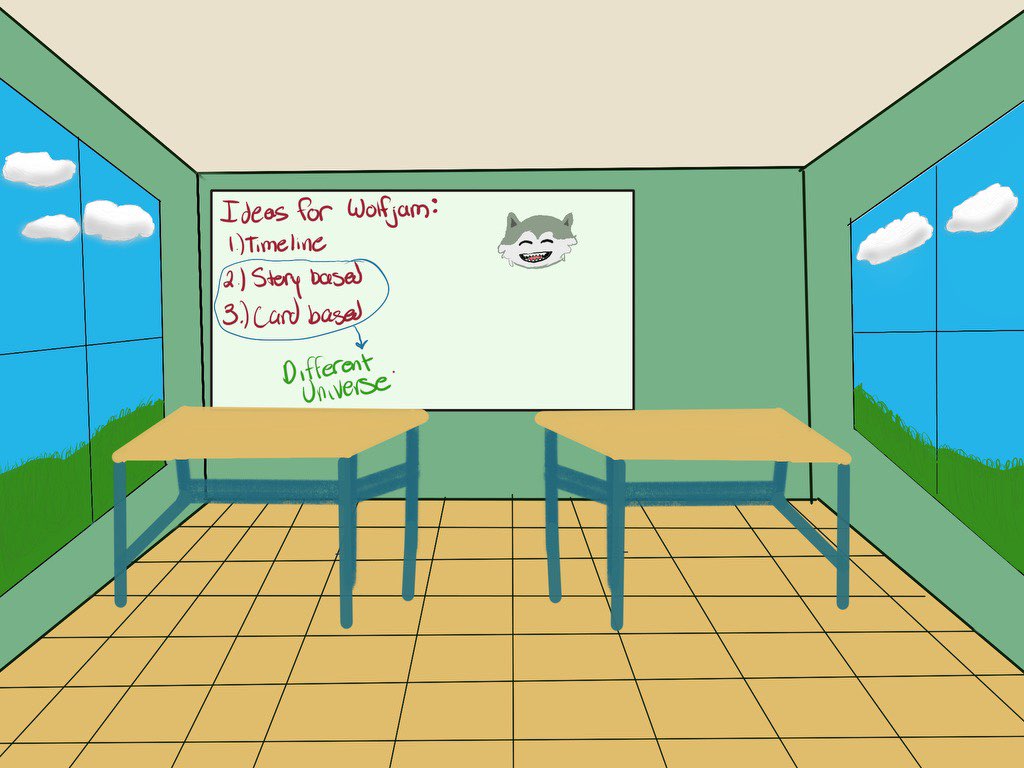 Ideas for Wolfjam:
1) Timeline
2.) Story based
3.) Card based
Different
Universe.